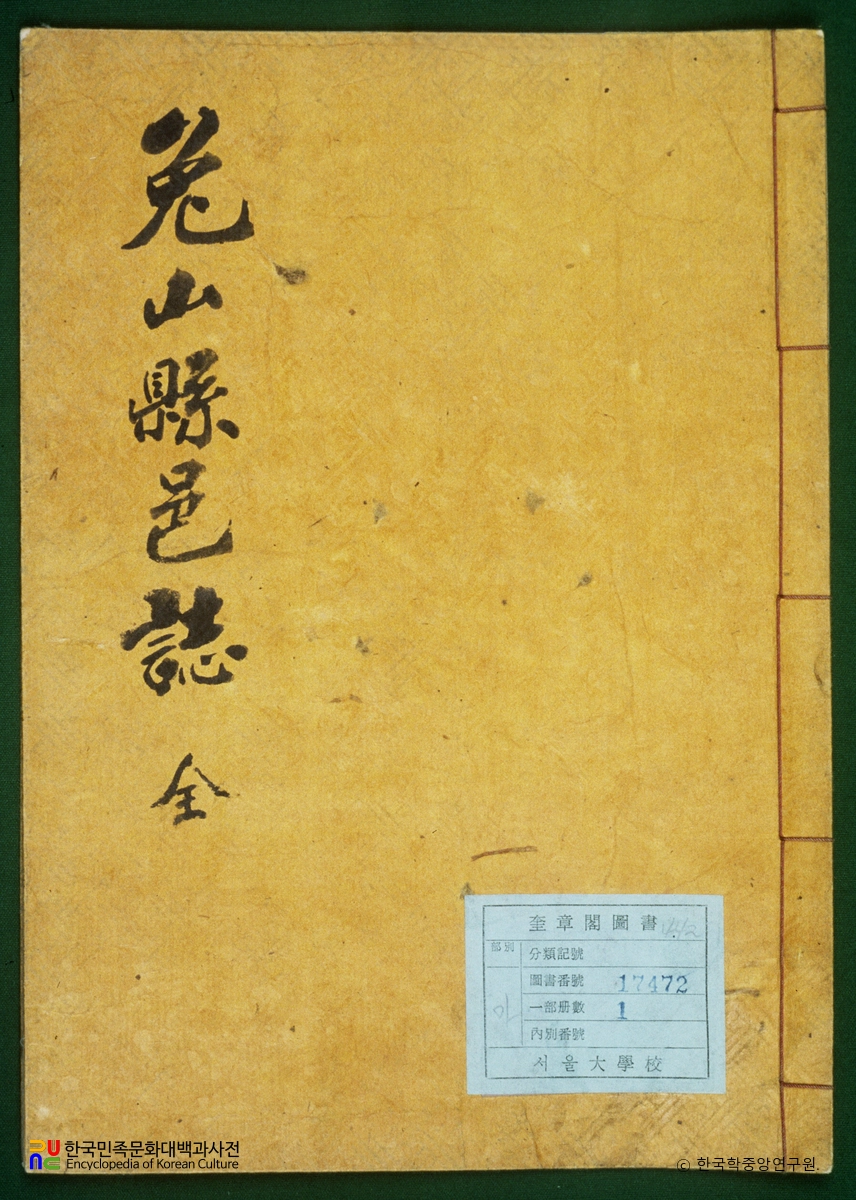 兔山縣邑誌 全
奎章閣圖書
部別
分類記號
圖書番號 17472
一部册數 1
內別番號
서울大學校
한국민족문화대백과사전
Encyclopedia of Korean Culture
© 한국학중앙연구원